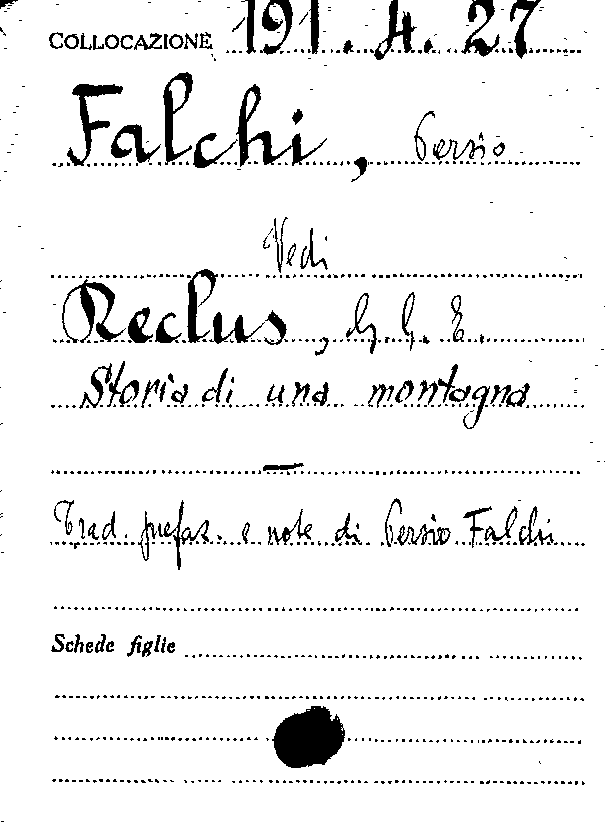 COLLOCAZIONE 191. 4. 27
Falchi, Persio
Vedi
Reclus, G. G. E.
Storia di una montagna
—
Trad. prefaz. e note di Persio Falchi
Schede figlie